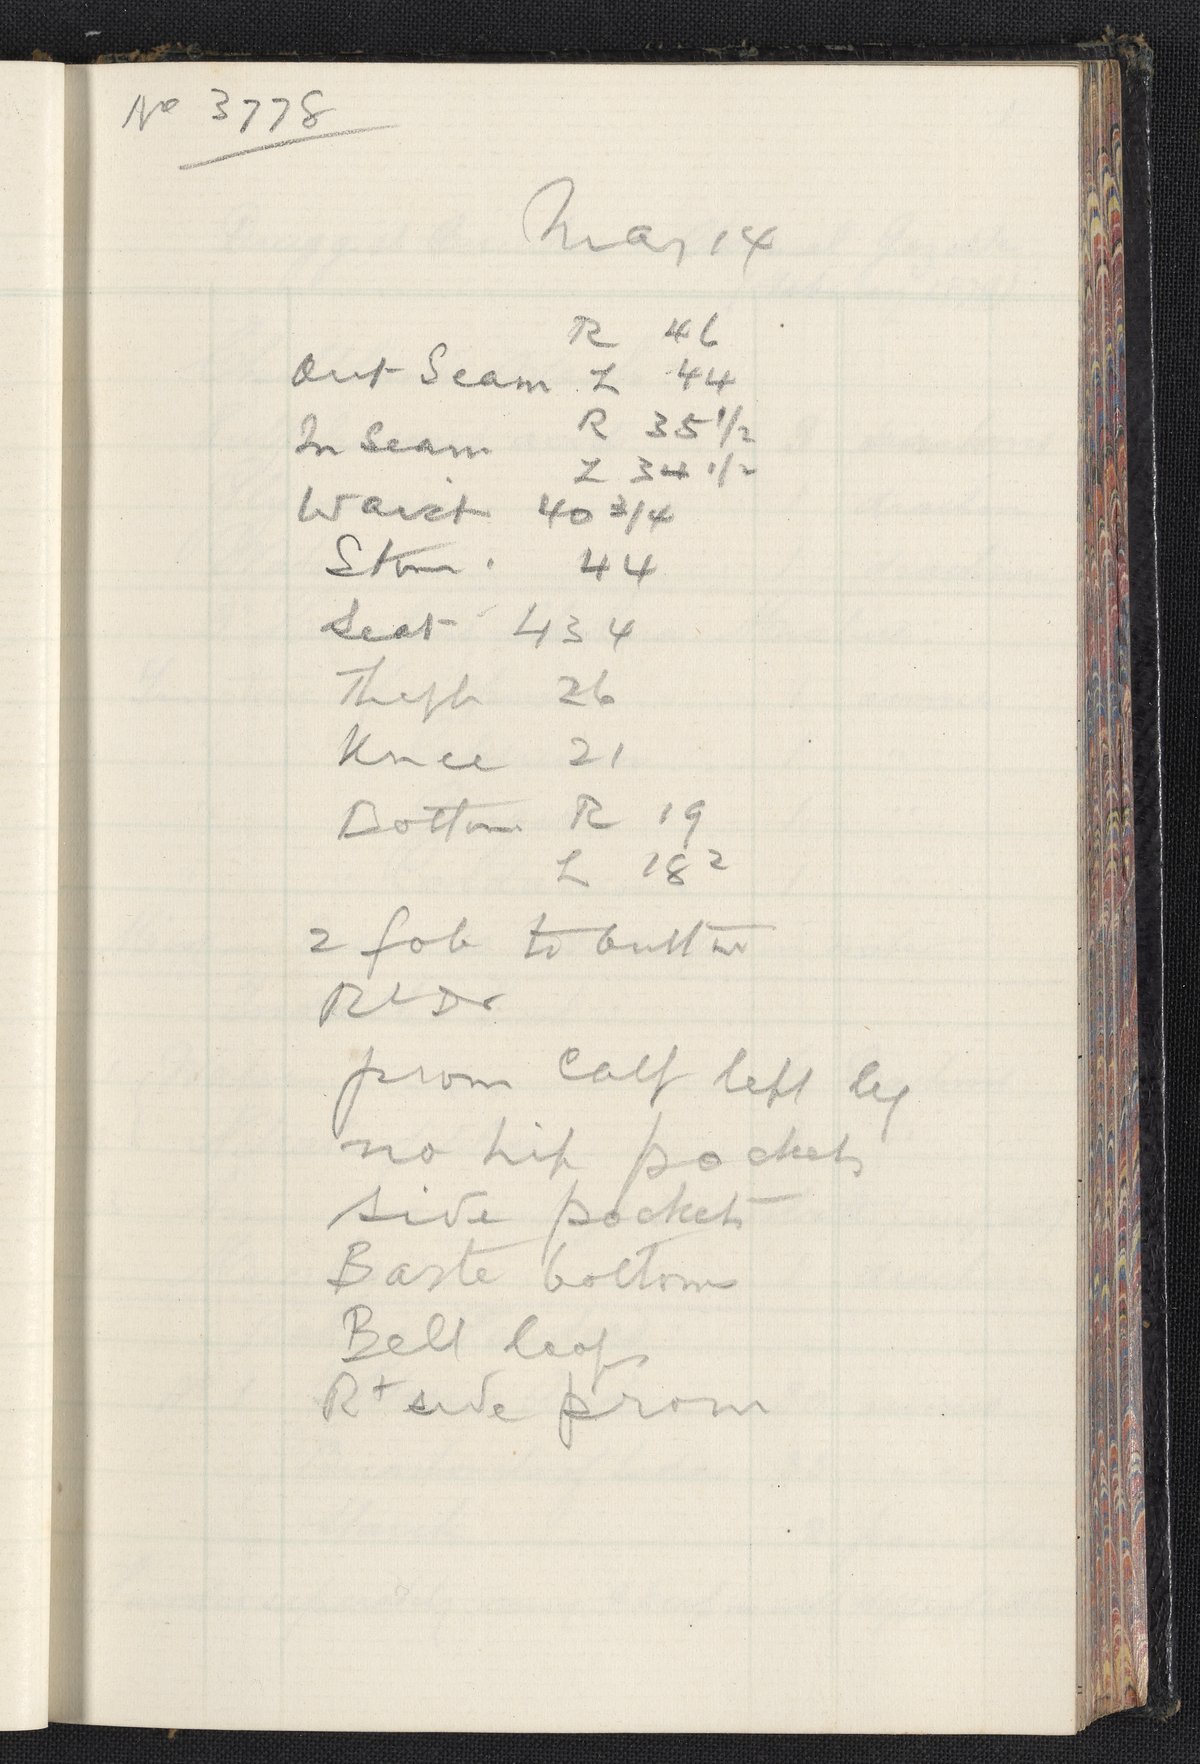 No 3778
Mar 14
R 46
Out Seam L 44
In Seam R 35 1/2
L 34 1/2
Waist 40 3/4
Stom. 44
Seat 43 4
Thigh 26
Knee 21
Bottom R 19
L 18 2
2 fob to button
Rt Dr
prom Calf left leg
no hip pockets
side pockets
Baste bottoms
Belt loops
Rt side prom